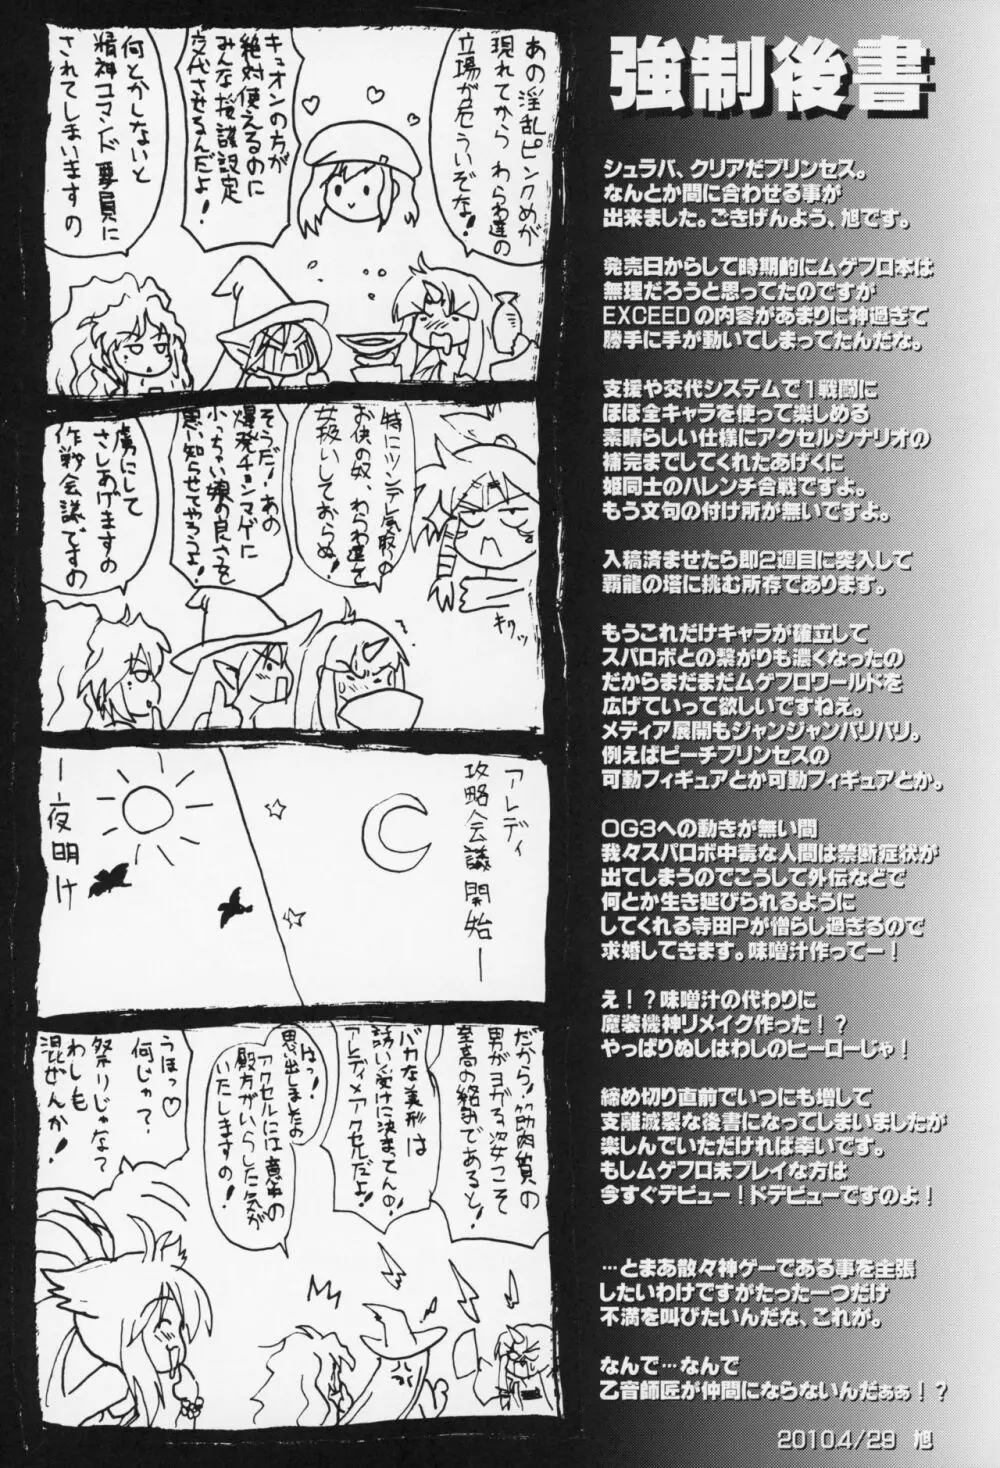 強制後書
シュラバ、クリアだプリンセス。
なんとか間に合わせる事が
出来ました。ごきげんよう、旭です。
発売日からして時期的にムゲフロ本は
無理だろうと思ってたのですが
EXCEEDの内容があまりに神過ぎて
勝手に手が動いてしまってたんだな。
支援や交代システムで1戦闘に
ほぼ全キャラを使って楽しめる
素晴らしい仕様にアクセルシナリオの
補完までしてくれたあげくに
姫同士のハレンチ合戦ですよ。
もう文句の付け所が無いですよ。
入稿済ませたら即2週目に突入して
覇龍の塔に挑む所存であります。
もうこれだけキャラが確立して
スパロボとの繋がりも濃くなったの
だからまだまだムゲフロワールドを
広げていって欲しいですねえ。
メディア展開もジャンジャンバリバリ。
例えばピーチプリンセスの
可動フィギュアとか可動フィギュアとか。
OG3への動きが無い間
我々スパロボ中毒な人間は禁断症状が
出てしまうのでこうして外伝などで
何とか生き延びられるように
してくれる寺田Pが憎らし過ぎるので
求婚してきます。味噌汁作ってー！
え！？味噌汁の代わりに
魔装機神リメイク作った！？
やっぱりぬしはわしのヒーローじゃ！
締め切り直前でいつにも増して
支離滅裂な後書になってしまいましたが
楽しんでいただければ幸いです。
もしムゲフロ未プレイな方は
今すぐデビュー！ドデビューですのよ！
…とまあ散々神ゲーである事を主張
したいわけですがたった一つだけ
不満を叫びたいんだな、これが。
なんで…なんで
乙音師匠が仲間にならないんだぁぁ！？
2010.4/29 旭
あの淫乱ピンクめが
現れてから わらわ達の
立場が危ういぞな！
キュオンの方が
絶対使えるのに
みんな桜談設定
交代させるんだよ！
何とかしないと
精神コマンド要員に
されてしまいますの
特にツンデレ気取りの
お供の奴、わらわ達を
女扱いしておらぬ！
キリッ
そうだ！あの
爆発チョンマゲに
小っちゃい娘の良さを
思い知らせてやろうよ！
虜にして
さしあげますの
作戦会議ですの
アレディ
攻略会議開始ー
ー夜明け
だから！筋肉質の
男がヨガる姿こそ
至高の絡みであると！
バカな美形は
誘い受けに決まってんの！
アレディ×アクセルだよ！
はっ！
思い出しましたの
アクセルには意中の
殿方がいらした気が
いたしますの！
うほっ♡
何じゃ？
祭りじゃな？
わしも
混ぜんか！